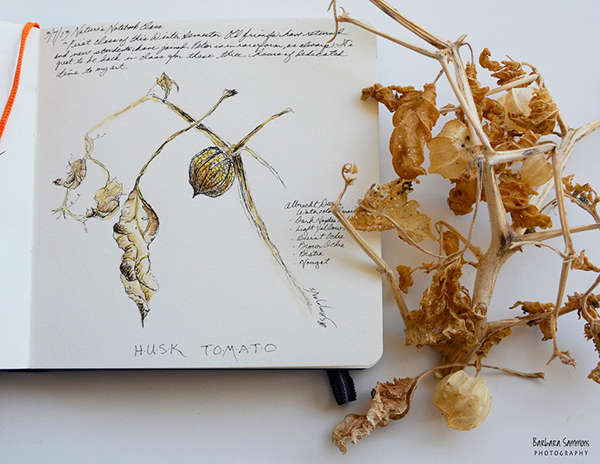 2/7/19 Nature's Notebook Class
~ First class of this Winter Semester. Old friends have returned
and new students have joined. Peter is in rare form, as always. It's
great to be back in class for these three hours of dedicated
time to my art.
Albrecht
Watercolor
• Dark Naples
• Light Yellow
• Burnt Ochre
• Brown Ochre
• Bistre
• Nougat
BSammons
HUSK TOMATO
Barbara Sammons
PHOTOGRAPHY